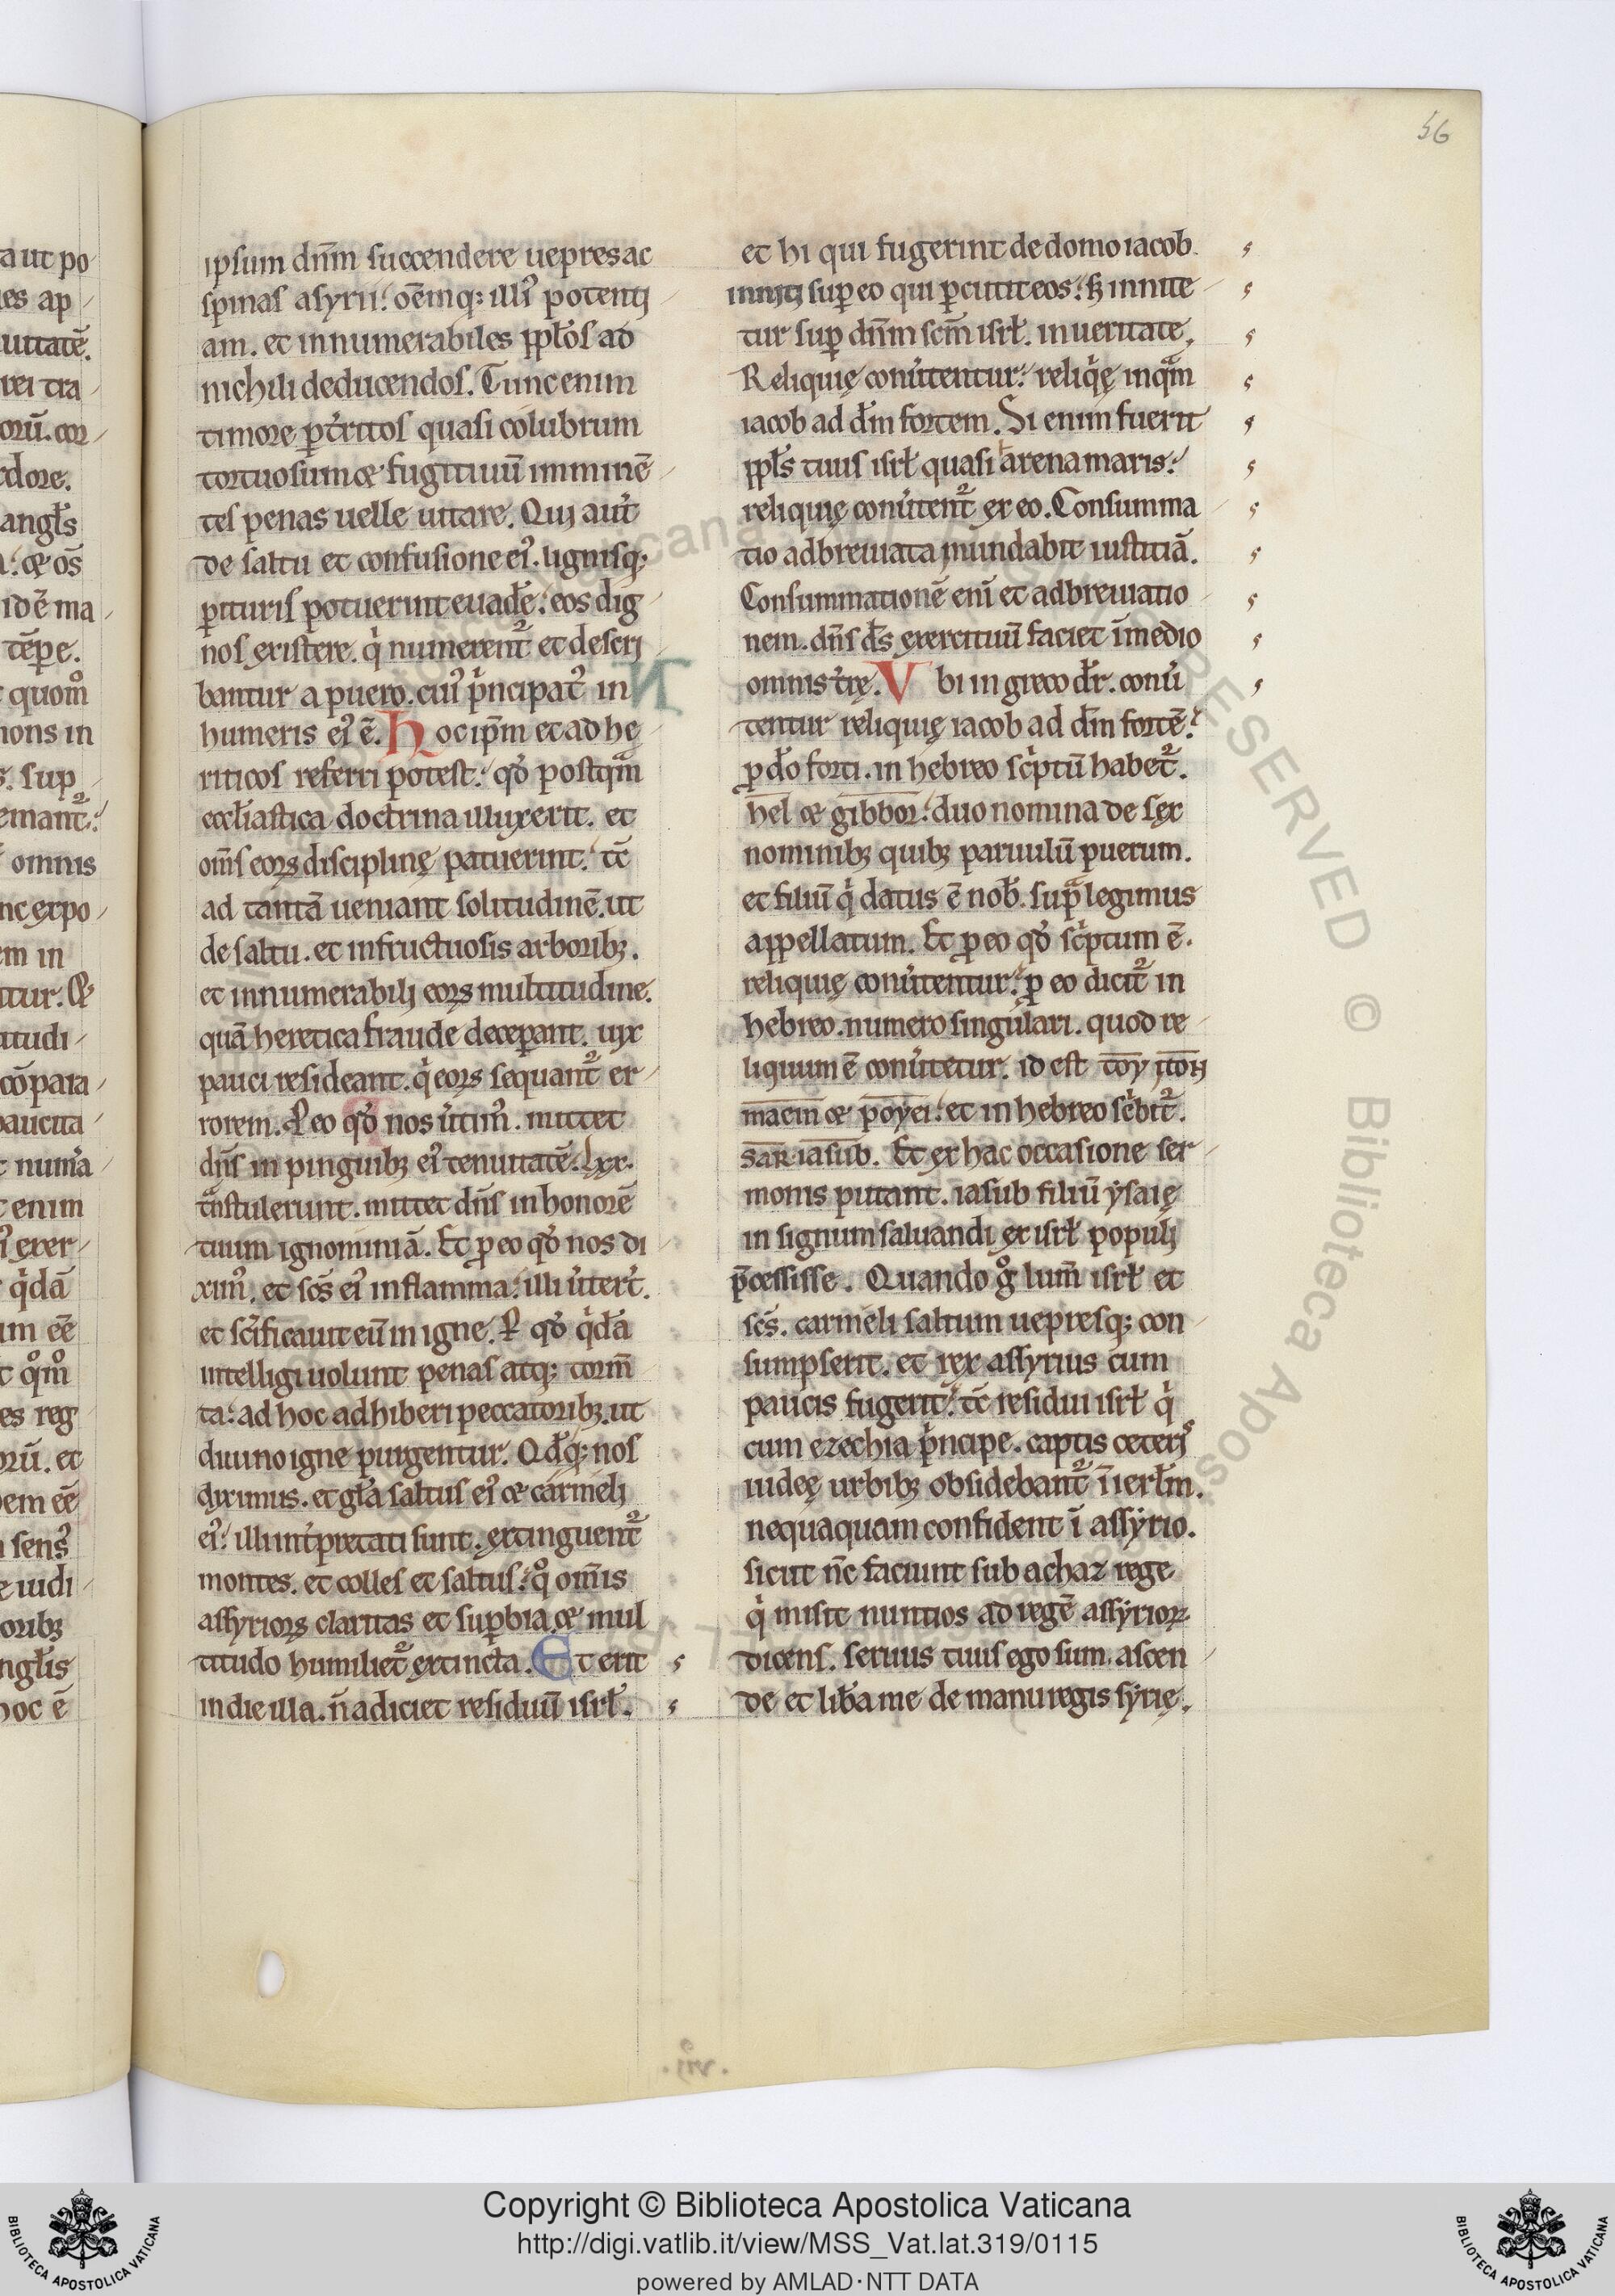 56
ipsum dn̄m succendere uepres ac
spinas asyrii. oēmq; illiꝰ potenti
am. et innumerabiles pplōs ad
nichili deducendos. Tunc enim
timore ꝑt̉ritos quasi colubrum
tortuosum & fugitiuū imminē
tes penas uelle uitare. Qui aut̉
de saltu et confusione eiꝰ. lignisq;
ꝑituris potuerint euadē. eos dig
nos existere. q̇ numerent᷑ et descri
bantur a puero. cuiꝰ p̍ncipatꝰ in
humeris eiꝰ ē. Hoc ip̄m et ad hę
riticos referri potest. qđ postqᵃ̄m
eccłiastica doctrina illuxerit. et
om̄s eoꝝ disciplinę patuerint. tc̄
ad tantā ueniant solitudinē. ut
de saltu. et infructuosis arboribꝫ.
et innumerabili eoꝝ multitudine.
quā heretica fraude deceꝑant. uix
pauci resideant. q̇ eoꝝ sequant᷑ er
rorem. P eo qđ nos u̍timꝰ. mittet
dn̄s in pinguibꝫ eiꝰ tenuitatē. Lxx.
tᵃ̄nstulerunt. mittet dn̄s in honorē
tuum ignominiā. Et ꝓ eo qđ nos di
ximꝰ. et sc̄s eiꝰ in flamma. illi u̍tert̉.
et sc̄ificauit eū in igne. P qđ q̇dā
intelligi uolunt penas atq; torm̄
ta. ad hoc adhiberi peccatoribꝫ. ut
diuino igne purgentur. Qđq; nos
diximus. et gła saltus eiꝰ & carmeli
eiꝰ. illi int̉pretati sunt. extinguent᷑
montes. et colles et saltus. qͦ om̄is
assyrioꝝ claritas et suꝑbia. & mul
titudo humiliet᷑ extincta. Et erit
in die illa. n̄ adiciet residuū isrł.
et hi qui fugerint de domo iacob.
inniti suꝑ eo qui ꝑcutit eos. sꝫ innite
tur suꝑ dn̄m sc̄m isrł. in ueritate.
Reliquię conu̍tentur. reliq̇ę inqᵃ̄m
iacob ad dm̄ fortem. Si enim fuerit
pplś tuus isrł quasi arena maris.
reliquię conu̍tent᷑ ex eo. Consumma
tio adbreuiata inundabit iustitiā.
Consummationē enī et adbreuiatio
nem. dn̄s ds̄ exercituū faciet ī medio
omnis t̉rę. Ubi in greco dr̄. conu̍
tentur reliquię iacob ad dm̄ fortē.
ꝓ dō forti. in hebreo sc̍ptū habet᷑.
hel & gibbor. duo nomina de sex
nominibꝫ quibꝫ paruulū puerum.
et filiū q̇ datus ē nob̄. supᵃ legimus
appellatum. Et ꝓ eo qđ sc̍ptum ē.
reliquię conu̍tentur. ꝓ eo dicit᷑ in
hebreo. numero singulari. quod re
liquum ē conu̍tetur. id est toy iton
maein & poyei. et in hebreo sc̍bit᷑.
sar iasub. Et ex hac occasione ser
monis putant. iasub filiū ysaię
in signum saluandi ex isrł populi
p̄cessisse. Quando gͦ lum̄ isrł et
sc̄s. carmeli saltum uepresq; con
sumpserit. et rex assyrius cum
paucis fugerit. tc̄ residui isrł q̇
cum ezechia p̍ncipe. captis ceteris
iudeę urbibꝫ obsidebant᷑ ī ierłm.
nequaquam confident ī assyrio.
sicut nc̄ faciunt sub achaz rege
q̇ misit nuntios ad regē assyrioꝝ
dicens. seruus tuus ego sum. ascen
de et lib̄a me de manu regis syrię.
.vij.
Copyright © Biblioteca Apostolica Vaticana
http://digi.vatlib.it/view/MSS_Vat.lat.319/0115
powered by AMLAD·NTT DATA
BIBLIOTECA APOSTOLICA VATICANA
BIBLIOTECA APOSTOLICA VATICANA